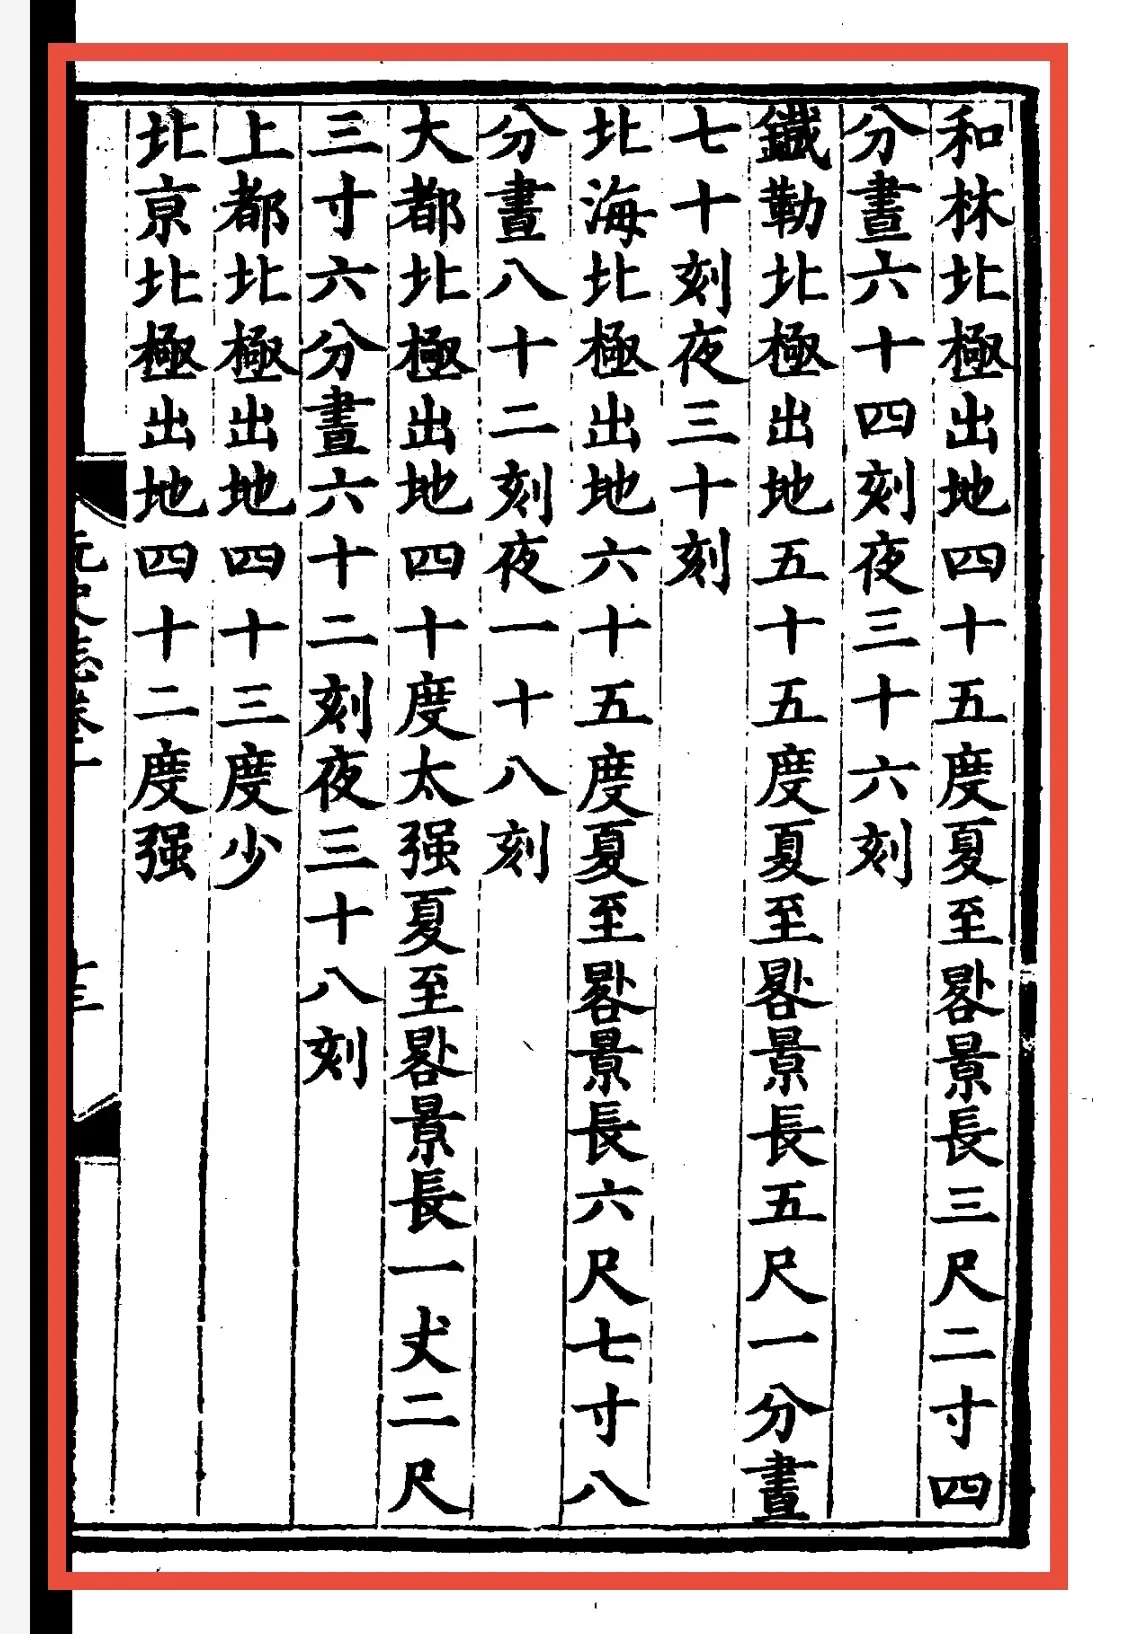 和林北極出地四十五度夏至晷景長三尺二寸四
分晝六十四刻夜三十六刻
鐵勒北極出地五十五度夏至晷景長五尺一分晝
七十刻夜三十刻
北海北極出地六十五度夏至晷景長六尺七寸八
分晝八十二刻夜一十八刻
大都北極出地四十度太强夏至晷景長一丈二尺
三寸六分晝六十二刻夜三十八刻
上都北極出地四十三度少
北京北極出地四十二度强
元史志卷一
十三